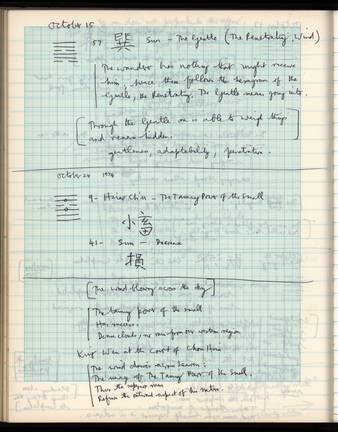 October 15
57 巽 Sun - The Gentle (The Penetrating Wind)
The wanderer has nothing that might receive
him, hence there follows the hexagram of the
Gentle, the Penetrating. The Gentle means going into.
Through the Gentle one is able to weigh things
and remain hidden.
gentleness, adaptability, penetration.
October 24
9 - Hsiao Ch'u - The Taming Power of the Small
小畜
41 - Sun - Decrease
損
The wind blowing across the sky
The taming power of the small
Has success.
Dense clouds, no rain from our western region
King Wen at the court of Chou Hsin
The wind drives across heaven:
The image of The Taming Power of the Small.
Thus the superior man
Refines the outward aspect of his nature.